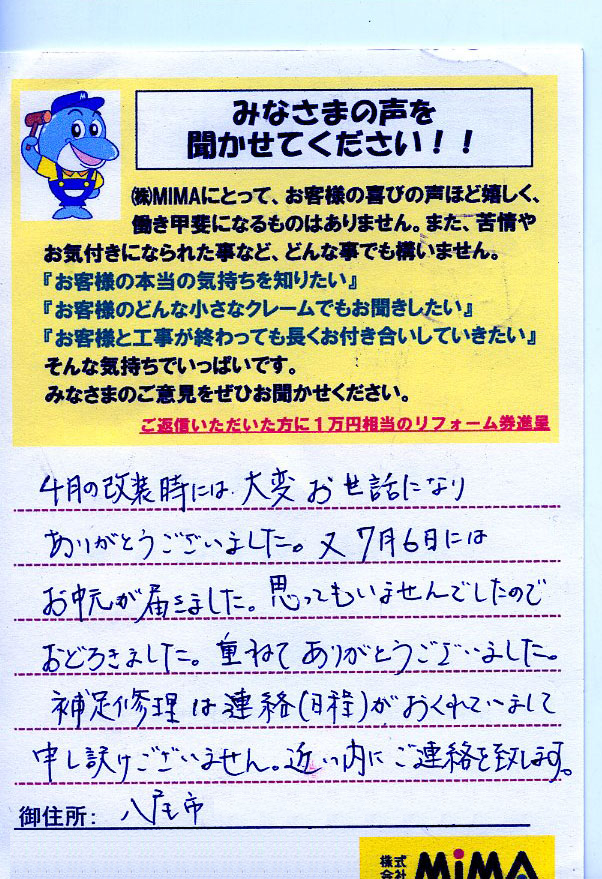 みなさまの声を
聞かせてください！！
㈱MIMAにとって、お客様の喜びの声ほど嬉しく、
働き甲斐になるものはありません。また、苦情や
お気付きになられた事など、どんな事でも構いません。
『お客様の本当の気持ちを知りたい』
『お客様のどんな小さなクレームでもお聞きしたい』
『お客様と工事が終わっても長くお付き合いしていきたい』
そんな気持ちでいっぱいです。
みなさまのご意見をぜひお聞かせください。
ご返信いただいた方に１万円相当のリフォーム券進呈
4月の改装時には、大変お世話になり
ありがとうございました。又7月6日には
お中元が届きました。思ってもいませんでしたので
おどろきました。重ねてありがとうございました。
補足修理は連絡(日程)がおくれていまして
申し訳けございません。近い内にご連絡を致します。
御住所: 八尾市
株式会社 MiMA
M